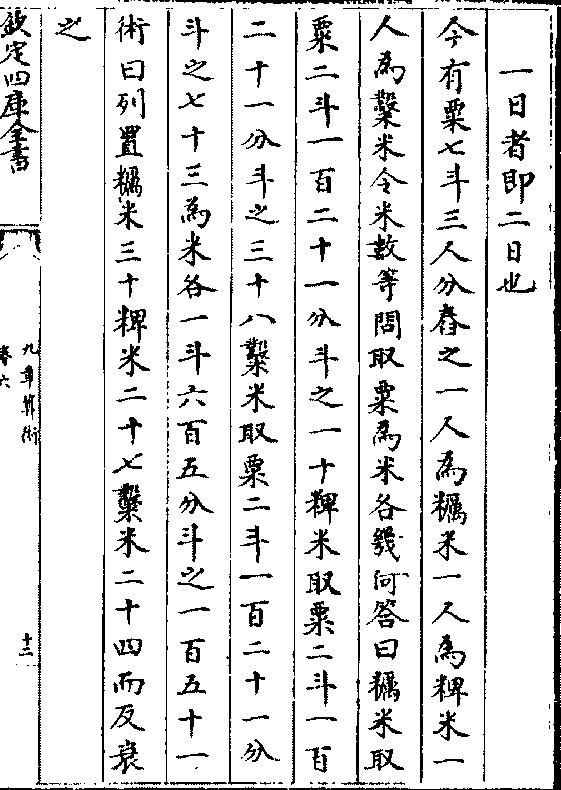 一日者即二日也
今有粟七斗三人分舂之一人為糲米一人為粺米一
人為糳米令米數等問取粟為米各幾何答曰糲米取
粟二斗一百二十一分斗之一十粺米取粟二斗一百
二十一分斗之三十八糳米取粟二斗一百二十一分
斗之七十三為米各一斗六百五分斗之一百五十一
術曰列置糲米三十粺米二十七糳米二十四而反衰
之
欽定四庫全書
九章算術
卷六
十三